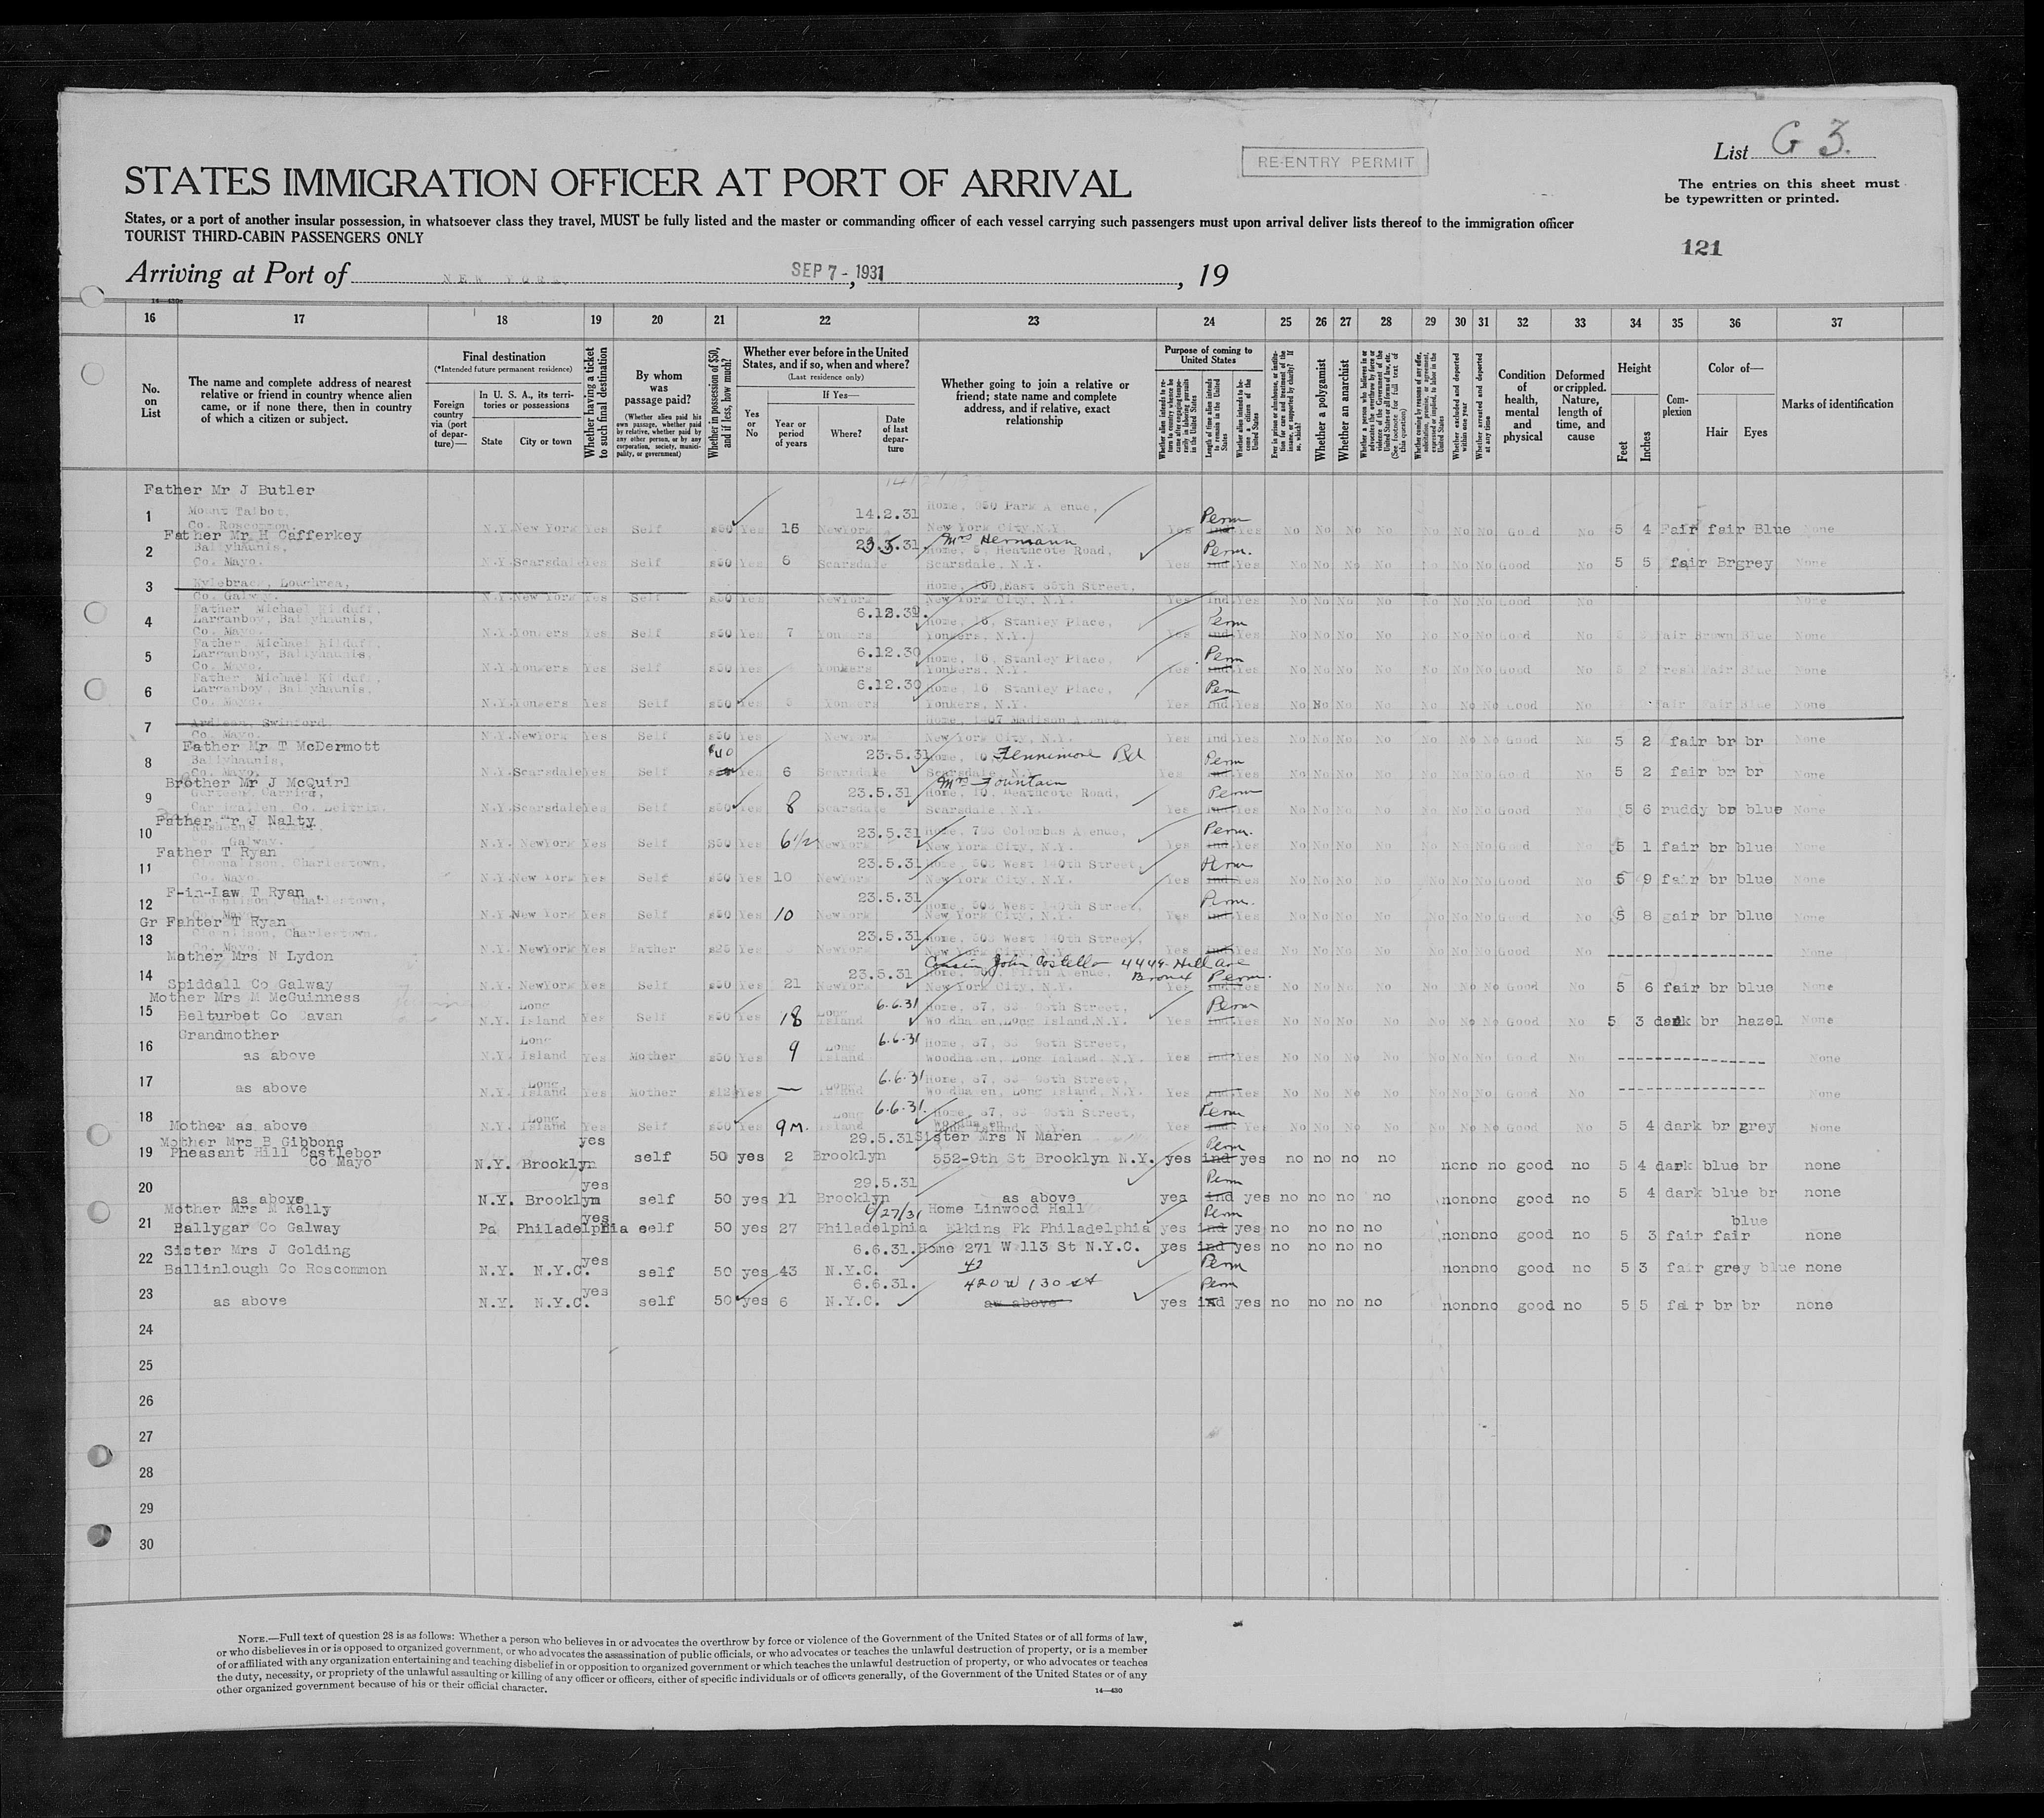 RE-ENTRY PERMIT
List G 3.
STATES IMMIGRATION OFFICER AT PORT OF ARRIVAL
The entries on this sheet must
be typewritten or printed.
States, or a port of another insular possession, in whatsoever class they travel, MUST be fully listed and the master or commanding officer of each vessel carrying such passengers must upon arrival deliver lists thereof to the immigration officer
TOURIST THIRD-CABIN PASSENGERS ONLY
121
Arriving at Port of NEW YORK, SEP 7 - 1931, 19
16 17 18 19 20 21 22 23 24 25 26 27 28 29 30 31 32 33 34 35 36 37
No. on List
The name and complete address of nearest relative or friend in country whence alien came, or if none there, then in country of which a citizen or subject.
Final destination
(*Intended future permanent residence)
Foreign country via (port of departure)—
In U. S. A., its territories or possessions
State
City or town
Whether having a ticket to such final destination
By whom was passage paid?
(Whether alien paid his own passage, whether paid by relative, whether paid by any other person, or by any corporation, society, municipality, or government)
Whether in possession of $50, and if less, how much?
Whether ever before in the United States, and if so, when and where?
(Last residence only)
Yes or No
If Yes—
Year or period of years
Where?
Date of last departure
Whether going to join a relative or friend; state name and complete address, and if relative, exact relationship
Purpose of coming to United States
Length of time alien intends to remain in the United States
Whether alien intends to become a citizen of the United States
Whether a polygamist
Whether an anarchist
(See footnote for full text of this question)
Whether excluded and deported within one year
Whether arrested and deported at any time
Condition of health, mental and physical
Deformed or crippled. Nature, length of time, and cause
Height
Feet
Inches
Complexion
Color of—
Hair
Eyes
Marks of identification
Father Mr J Butler
1 Mount Talbot, 14.2.31 Home, 950 Park Avenue, Perm
Co. Roscommon. N.Y. New York Yes Self $50 Yes 15 NewYork New York City, N.Y. Yes Ind Yes No No No No No No No Good No 5 4 Fair fair Blue None
Father Mr H Cafferkey 31 Mrs Hermann
2 Ballyhaunis, Home, 5, Heathcote Road, Perm.
Co. Mayo. N.Y. Scarsdale Yes Self $50 Yes 6 Scarsdale Scarsdale, N.Y. Yes Ind Yes No No No No No No No Good No 5 5 fair Br grey None
3 Kylebrack, Loughrea, Home, East 85th Street,
Co. Galway. N.Y. New York Yes Self $50 Yes NewYork New York City, N.Y. Yes Ind Yes No No No No No No No Good None
Father Michael Kilduff, 6.12.
4 Larganboy, Ballyhaunis, Home, 16, Stanley Place, Perm
Co. Mayo. N.Y. Yonkers Yes Self $50 Yes 7 Yonkers Yonkers, N.Y. Yes Ind Yes No No No No No No No Good No fair Brown Blue None
Father Michael Kilduff,
5 Larganboy, Ballyhaunis, 6.12.30 Home, 16, Stanley Place, Perm
Co. Mayo. N.Y. Yonkers Yes Self $50 Yes Yonkers Yonkers, N.Y. Yes Ind Yes No No No No No No No Good No Fresh Fair Blue None
Father Michael Kilduff,
6 Larganboy, Ballyhaunis, 6.12.30 Home, 16, Stanley Place, Perm
Co. Mayo. N.Y. Yonkers Yes Self $50 Yes Yonkers Yonkers, N.Y. Yes Ind Yes No No No No No No No Good No Fair Fair Blue None
7 Swinford. Home, 1407 Madison Avenue,
Co. Mayo. N.Y. NewYork Yes Self $50 Yes NewYork New York City, N.Y. Yes Ind Yes No No No No No No No Good No 5 2 fair br br None
Father Mr T McDermott $40 23.5.31 Fennimore Rd
8 Ballyhaunis, Home, 10 Perm
Co. Mayo. N.Y. Scarsdale Yes Self Yes 6 Scarsdale Scarsdale, N.Y. Yes No No No No No No No Good No 5 2 fair br br None
Brother Mr J McQuirl Mrs Fountain
9 Carrigallen, Co. Leitrim. 23.5.31 Home, 10, Heathcote Road, Perm
N.Y. Scarsdale Yes Self $50 Yes 8 Scarsdale Scarsdale, N.Y. Yes Ind Yes No No No No No No No Good No 5 6 ruddy br blue None
Father Mr J Nalty
10 23.5.31 Home, 793 Columbus Avenue, Perm.
Galway. N.Y. NewYork Yes Self $50 Yes 6½ NewYork New York City, N.Y. Yes Ind Yes No No No No No No No Good No 5 1 fair br blue None
Father T Ryan
11 Charlestown, 23.5.31 Home, 503 West 140th Street, Perm
Co. Mayo. N.Y. New York Yes Self $50 Yes 10 NewYork New York City, N.Y. Yes Ind Yes No No No No No No No Good No 5 9 fair br blue None
F-in-Law T Ryan
12 Charlestown, 23.5.31 Home, 503 West 140th Street, Perm.
Co. Mayo. N.Y. New York Yes Self $50 Yes 10 NewYork New York City, N.Y. Yes Ind Yes No No No No No No No Good No 5 8 gair br blue None
Gr Fahter T Ryan
13 Charlestown. 23.5.31 Home, 503 West 140th Street,
Co. Mayo. N.Y. NewYork Yes Father $25 Yes NewYork New York City, N.Y. Yes Ind Yes No No No No No No No Good No ---------------- None
Mother Mrs N Lydon Cousin John Costello 4449 Hill Ave
14 23.5.31 Home, Fifth Avenue, Bronx Perm.
Spiddall Co Galway N.Y. NewYork Yes Self $50 Yes 21 NewYork New York City, N.Y. Yes Ind Yes No No No No No No No Good No 5 6 fair br blue None
Mother Mrs M McGuinness Long 6.6.31 Home, 87, 95th Street, Perm
15 Belturbet Co Cavan N.Y. Island Yes Self $50 Yes 18 Long Island Woodhaven, Long Island, N.Y. Yes Ind Yes No No No No No No No Good No 5 3 dark br hazel None
Grandmother Long 6.6.31 Home, 87, 95th Street,
16 as above N.Y. Island Yes Mother $50 Yes 9 Long Island Woodhaven, Long Island, N.Y. Yes Ind Yes No No No No No No No Good No ---------------- None
17 as above Long 6.6.31 Home, 87, 95th Street,
N.Y. Island Yes Mother Yes — Long Island Woodhaven, Long Island, N.Y. Yes Ind Yes No No No No No No No Good No ---------------- None
18 Long 6.6.31. Home, 87, 95th Street, Perm
Mother as above N.Y. Island Yes Self $50 Yes 9 M. Long Island Woodhaven Long Island, N.Y. Yes Ind Yes No No No No No No No Good No 5 4 dark br grey None
Mother Mrs B Gibbons yes 29.5.31 Sister Mrs N Maren Perm
19 Pheasant Hill Castlebor N.Y. Brooklyn self 50 yes 2 Brooklyn 552-9th St Brooklyn N.Y. yes ind yes no no no no nono no good no 5 4 dark blue br none
Co Mayo
20 yes 29.5.31 Perm
as above N.Y. Brooklyn self 50 yes 11 Brooklyn as above yes ind yes no no no no nonono good no 5 4 dark blue br none
Mother Mrs M Kelly yes 6/27/31 Home Linwood Hall Perm blue
21 Ballygar Co Galway Pa Philadelphia self 50 yes 27 Philadelphia Elkins Pk Philadelphia yes ind yes no no no no nonono good no 5 3 fair fair none
Sister Mrs J Golding 6.6.31. Home 271 W 113 St N.Y.C. yes ind yes no no no no
22 Ballinlough Co Roscommon yes N.Y. N.Y.C. self 50 yes 43 N.Y.C. Perm nonono good no 5 3 fair grey blue none
yes 6.6.31. 420 W 130 st Perm
23 as above N.Y. N.Y.C. self 50 yes 6 N.Y.C. as above yes ind yes no no no no nonono good no 5 5 fair br br none
24
25
26
27
28
29
30
NOTE.—Full text of question 28 is as follows: Whether a person who believes in or advocates the overthrow by force or violence of the Government of the United States or of all forms of law,
or who disbelieves in or is opposed to organized government, or who advocates the assassination of public officials, or who advocates or teaches the unlawful destruction of property, or is a member
of or affiliated with any organization entertaining and teaching disbelief in or opposition to organized government or which teaches the unlawful destruction of property, or who advocates or teaches
the duty, necessity, or propriety of the unlawful assaulting or killing of any officer or officers, either of specific individuals or of officers generally, of the Government of the United States or of any
other organized government because of his or their official character.
14—430